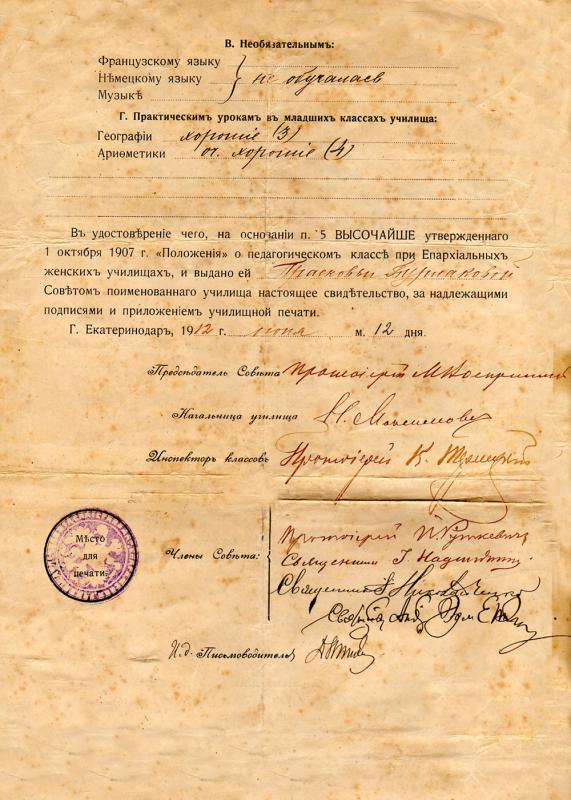 В. Необязательнымъ:
Французскому языку
Нѣмецкому языку не обучалась
Музыкѣ
Г. Практическимъ урокамъ въ младшихъ классахъ училища:
Географіи хорошіе (3)
Ариѳметики оч. хорошіе (4)
Въ удостовѣреніе чего, на основаніи п. 5 ВЫСОЧАЙШЕ утвержденнаго
1 октября 1907 г. «Положенія» о педагогическомъ классѣ при Епархіальныхъ
женскихъ училищахъ, и выдано ей Прасковьи
Совѣтомъ поименованнаго училища настоящее свидѣтельство, за надлежащими
подписями и приложеніемъ училищной печати.
Г. Екатеринодаръ, 1912 г. іюня м. 12 дня.
Предсѣдатель Совѣта Протоіерей
Начальница училища
Инспекторъ классовъ Протоіерей К.
Протоіерей
Мѣсто
для
печати.
Члены Совѣта:
Священникъ
Священникъ
И.д. Письмоводителя